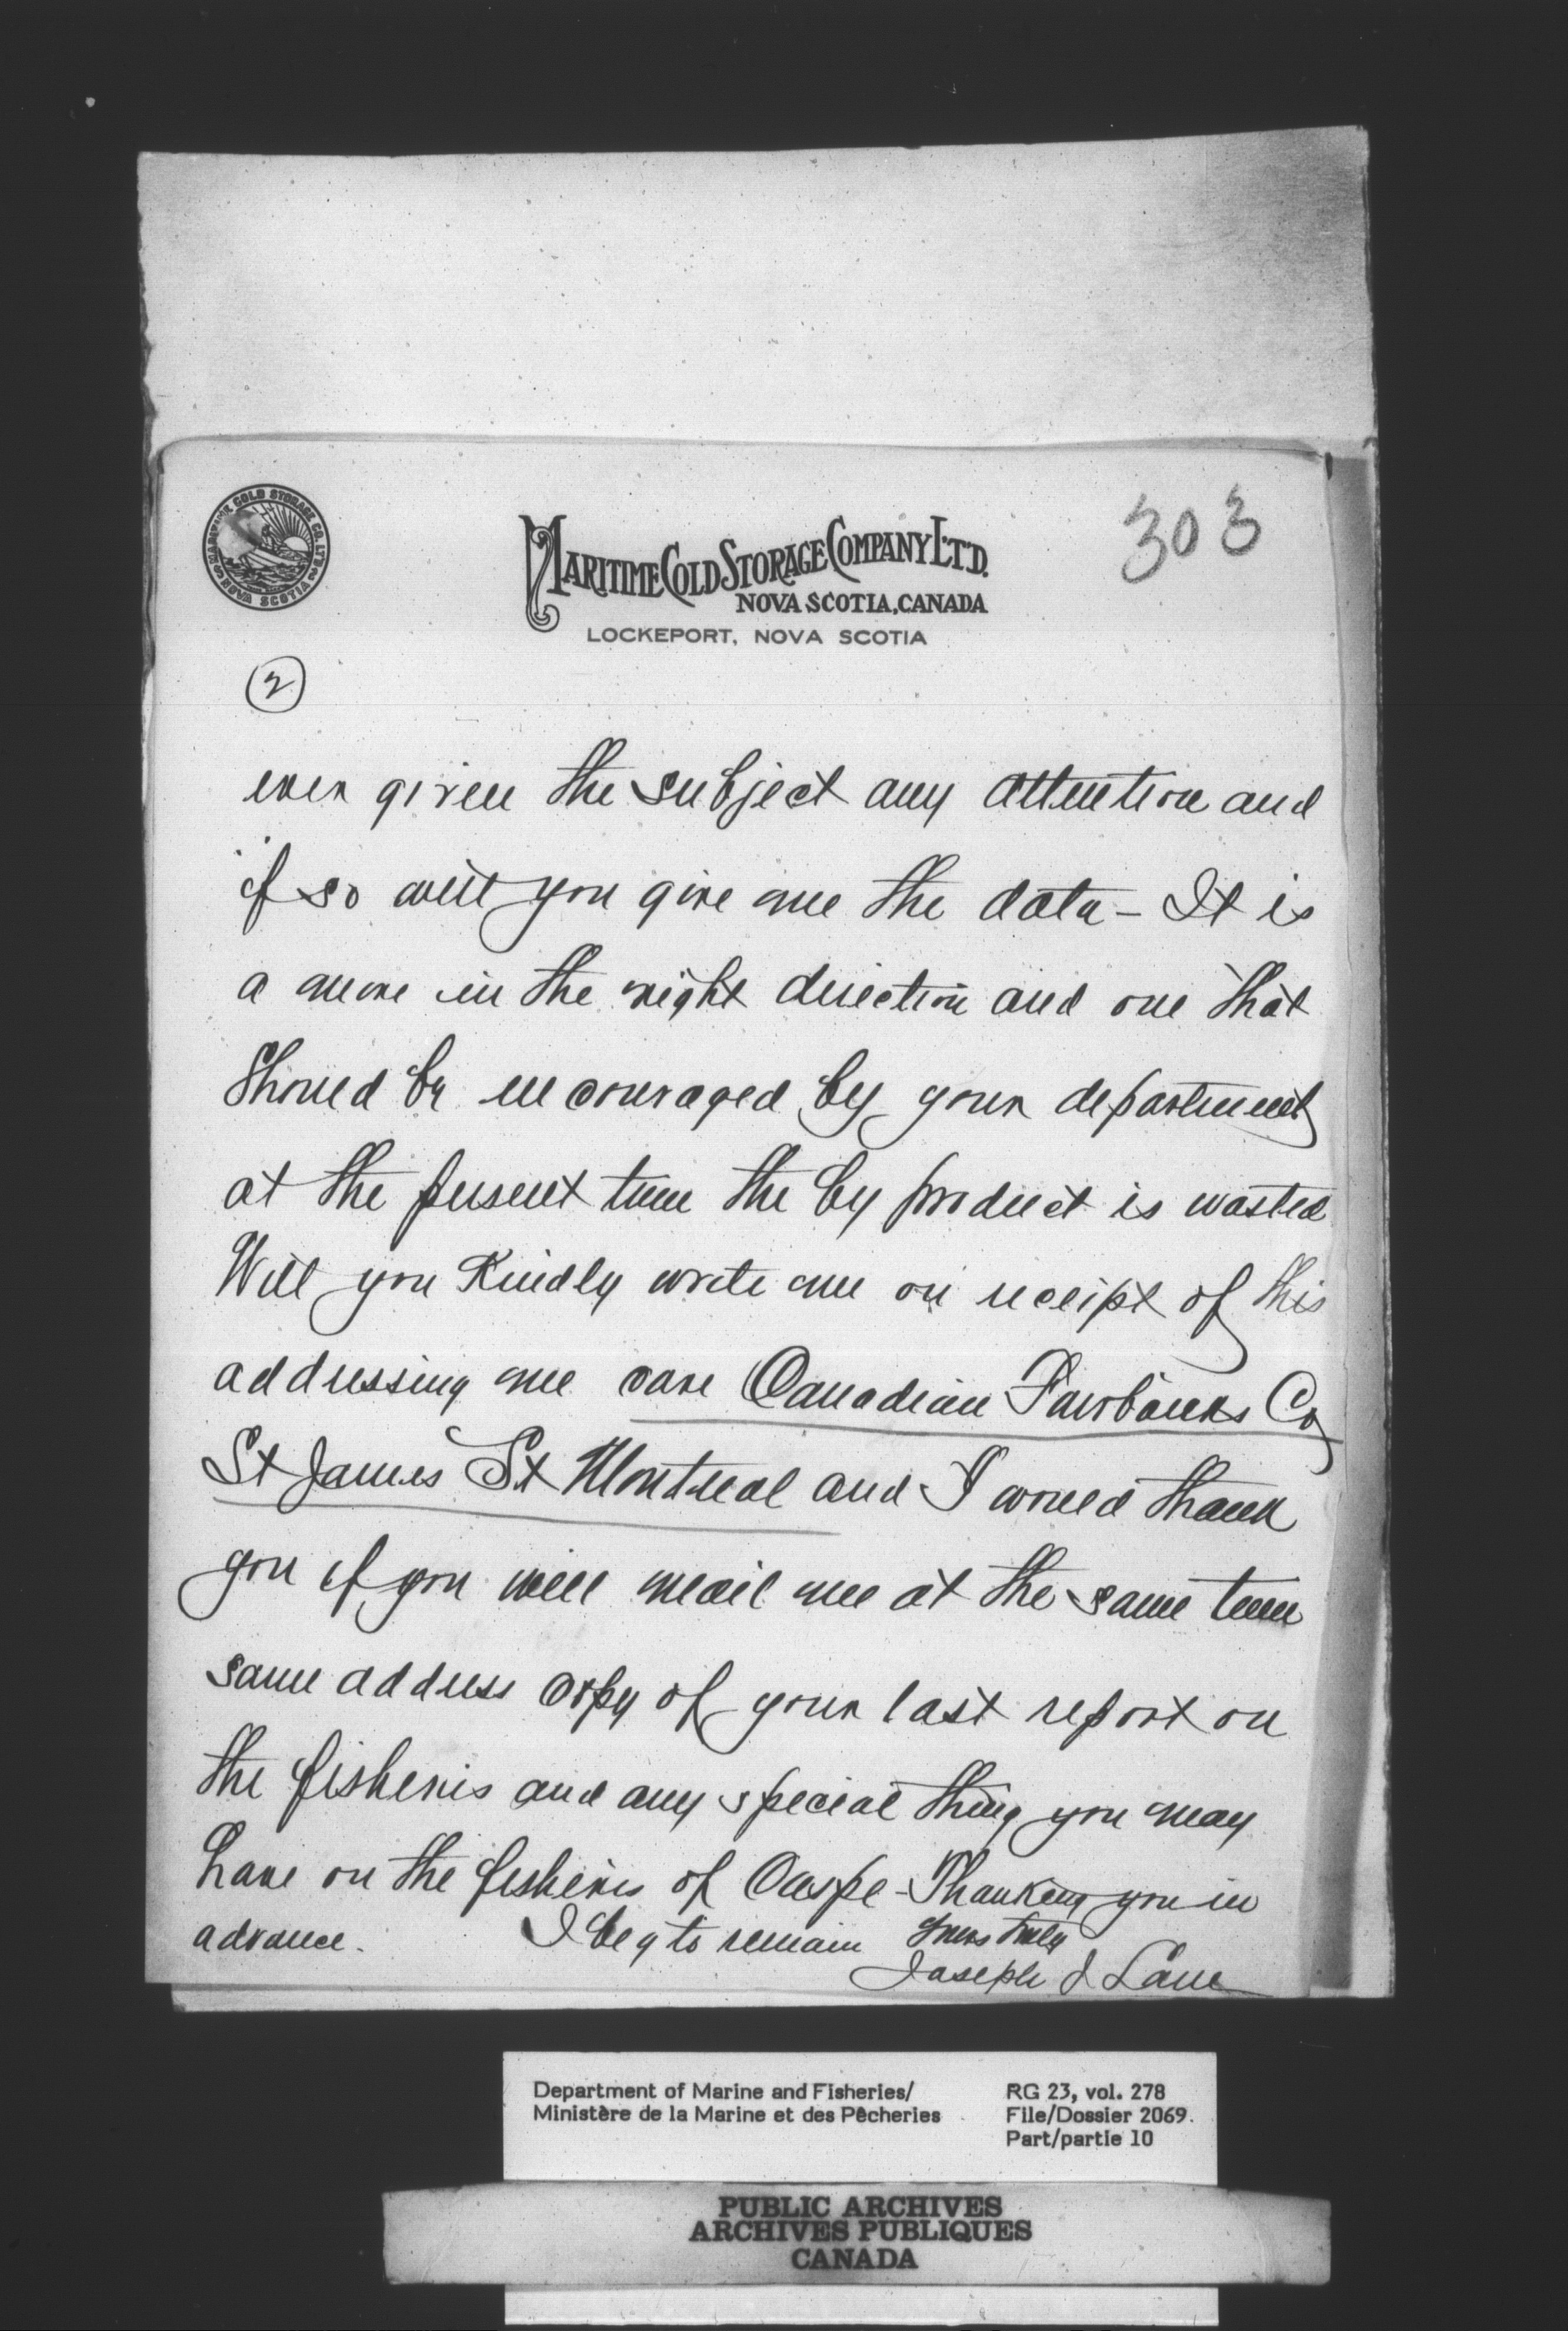 303
MARITIME COLD STORAGE CO. LTD. NOVA SCOTIA
MARITIME COLD STORAGE COMPANY LTD.
NOVA SCOTIA, CANADA
LOCKEPORT, NOVA SCOTIA
2
ever given the subject any attention and
if so will you give me the data – It is
a move in the right direction and one that
should be encouraged by your department
at the present time the by product is wasted
Will you Kindly write me on receipt of this
addressing me care Canadian Fairbanks Co
St James St Montreal and I would thank
you if you will mail me at the same time
same address copy of your last report on
the fisheries and any special thing you may
have on the fisheries of Gaspe – Thanking you in
advance. I beg to remain Yours truly
Joseph J Lane
Department of Marine and Fisheries/
Ministère de la Marine et des Pêcheries
RG 23, vol. 278
File/Dossier 2069.
Part/partie 10
PUBLIC ARCHIVES
ARCHIVES PUBLIQUES
CANADA